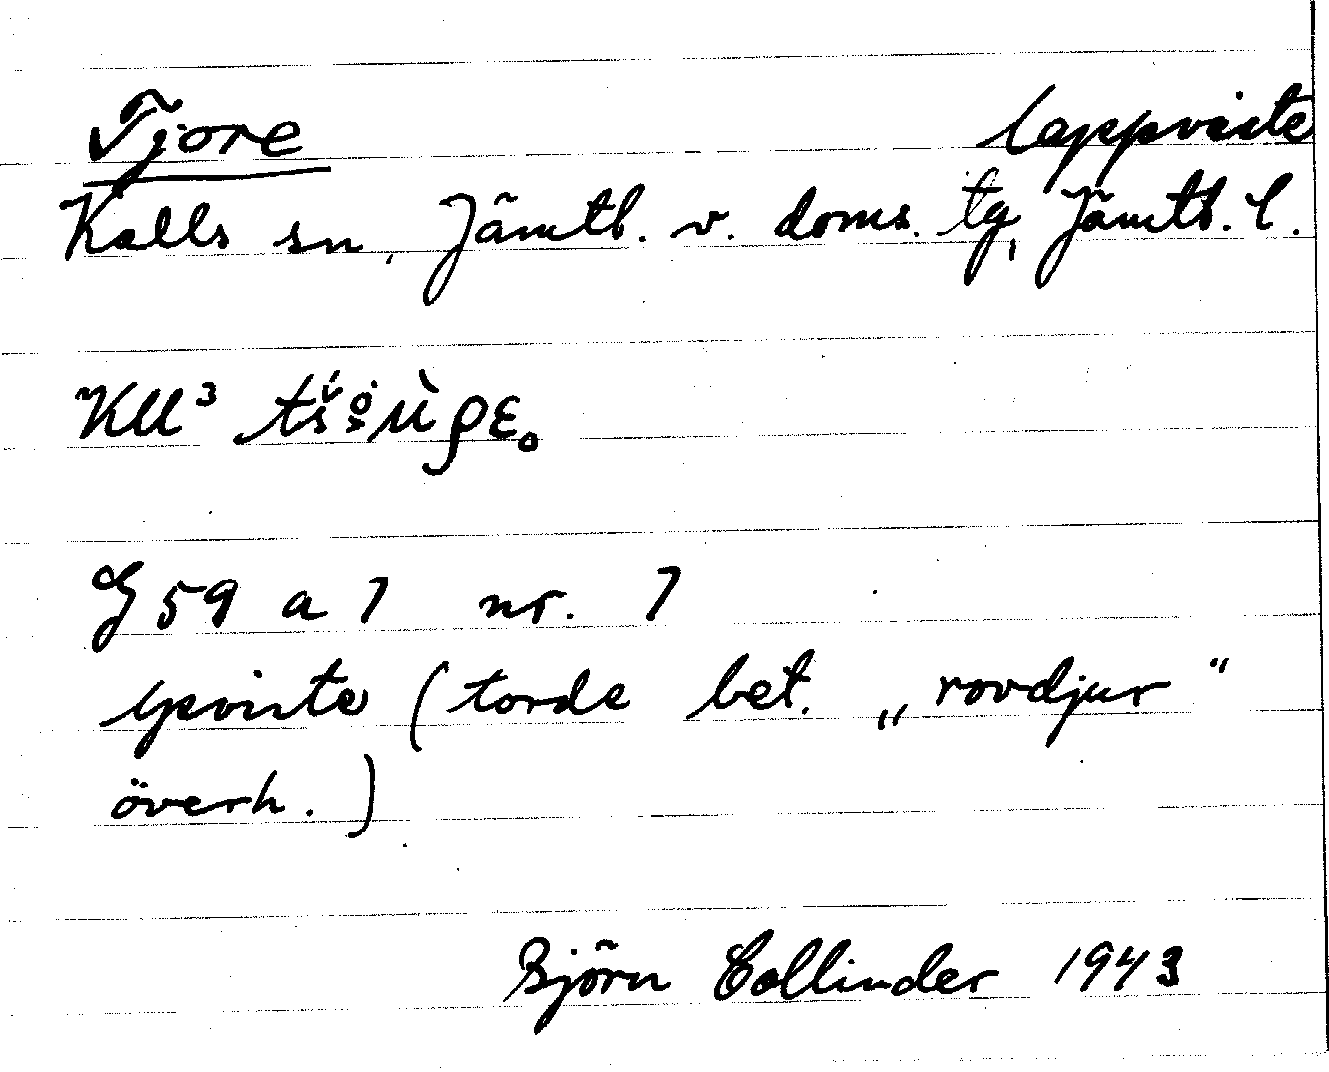 Tjore lappviste
Kalls sn, Jämtl. v. doms. tg, Jämtl. l.
KU³
G 59 a 7 nr. 7
lpviste (torde bet. „rovdjur“
överh.)
Björn Collinder 1943